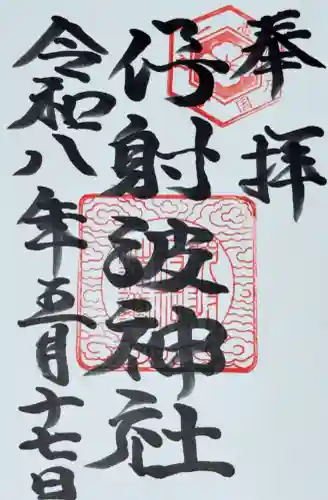 奉拝
伊射波神社
令和八年五月十七日